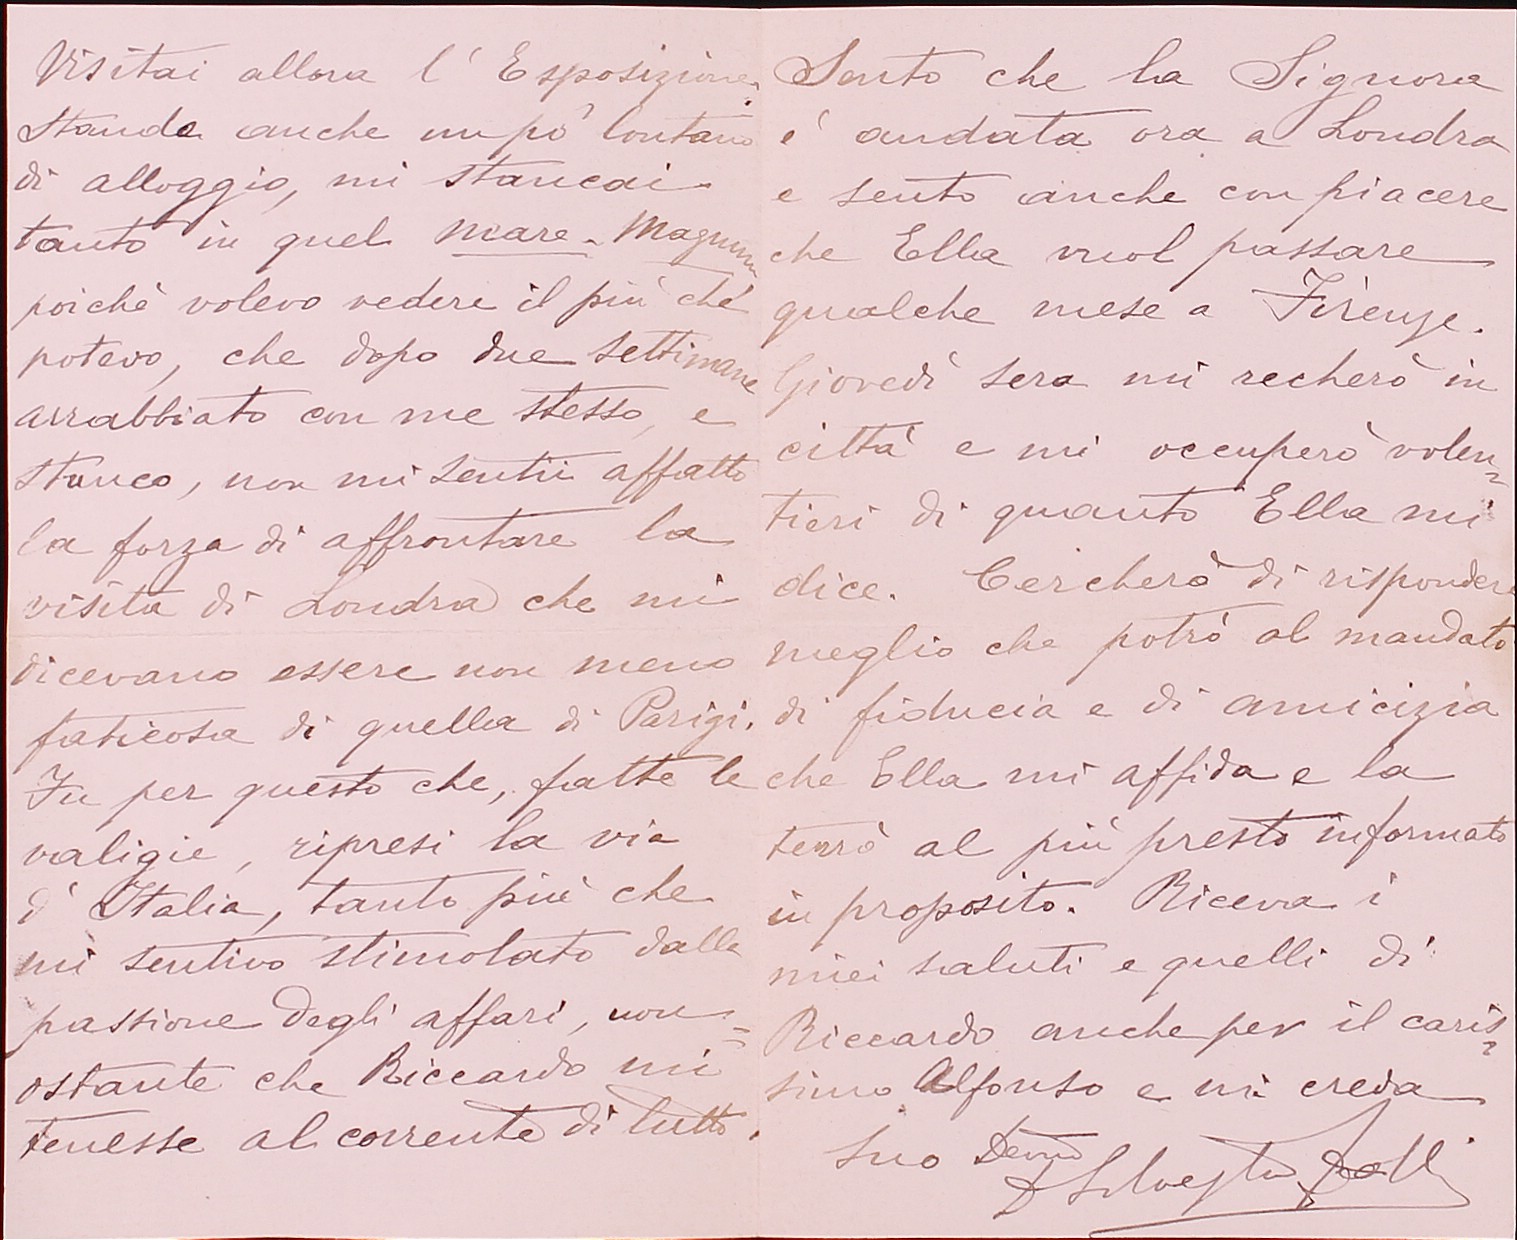 Visitai allora l'Esposizione.
Stando anche un pò lontano
di alloggio, mi stancai
tanto in quel mare-magnum
poichè volevo vedere il più che
potevo, che dopo due settimane
arrabbiato con me stesso, e
stanco, non mi sentii affatto
la forza di affrontare la
visita di Londra che mi
dicevano essere non meno
faticosa di quella di Parigi.
Fu per questo che, fatte le
valigie, ripresi la via
d'Italia, tanto più che
mi sentivo stimolato dalla
passione degli affari, non=
ostante che Riccardo mi
tenesse al corrente di tutto.
Sento che la Signora
è andata ora a Londra
e sento anche con piacere
che Ella vuol passare
qualche mese a Firenze.
Giovedì sera mi recherò in
città e mi occuperò volen=
tieri di quanto Ella mi
dice. Cercherò di rispondere
meglio che potrò al mandato
di fiducia e di amicizia
che Ella mi affida e la
terrò al più presto informato
in proposito. Riceva i
miei saluti e quelli di
Riccardo anche per il caris=
simo Alfonso e mi creda
Suo Devmo